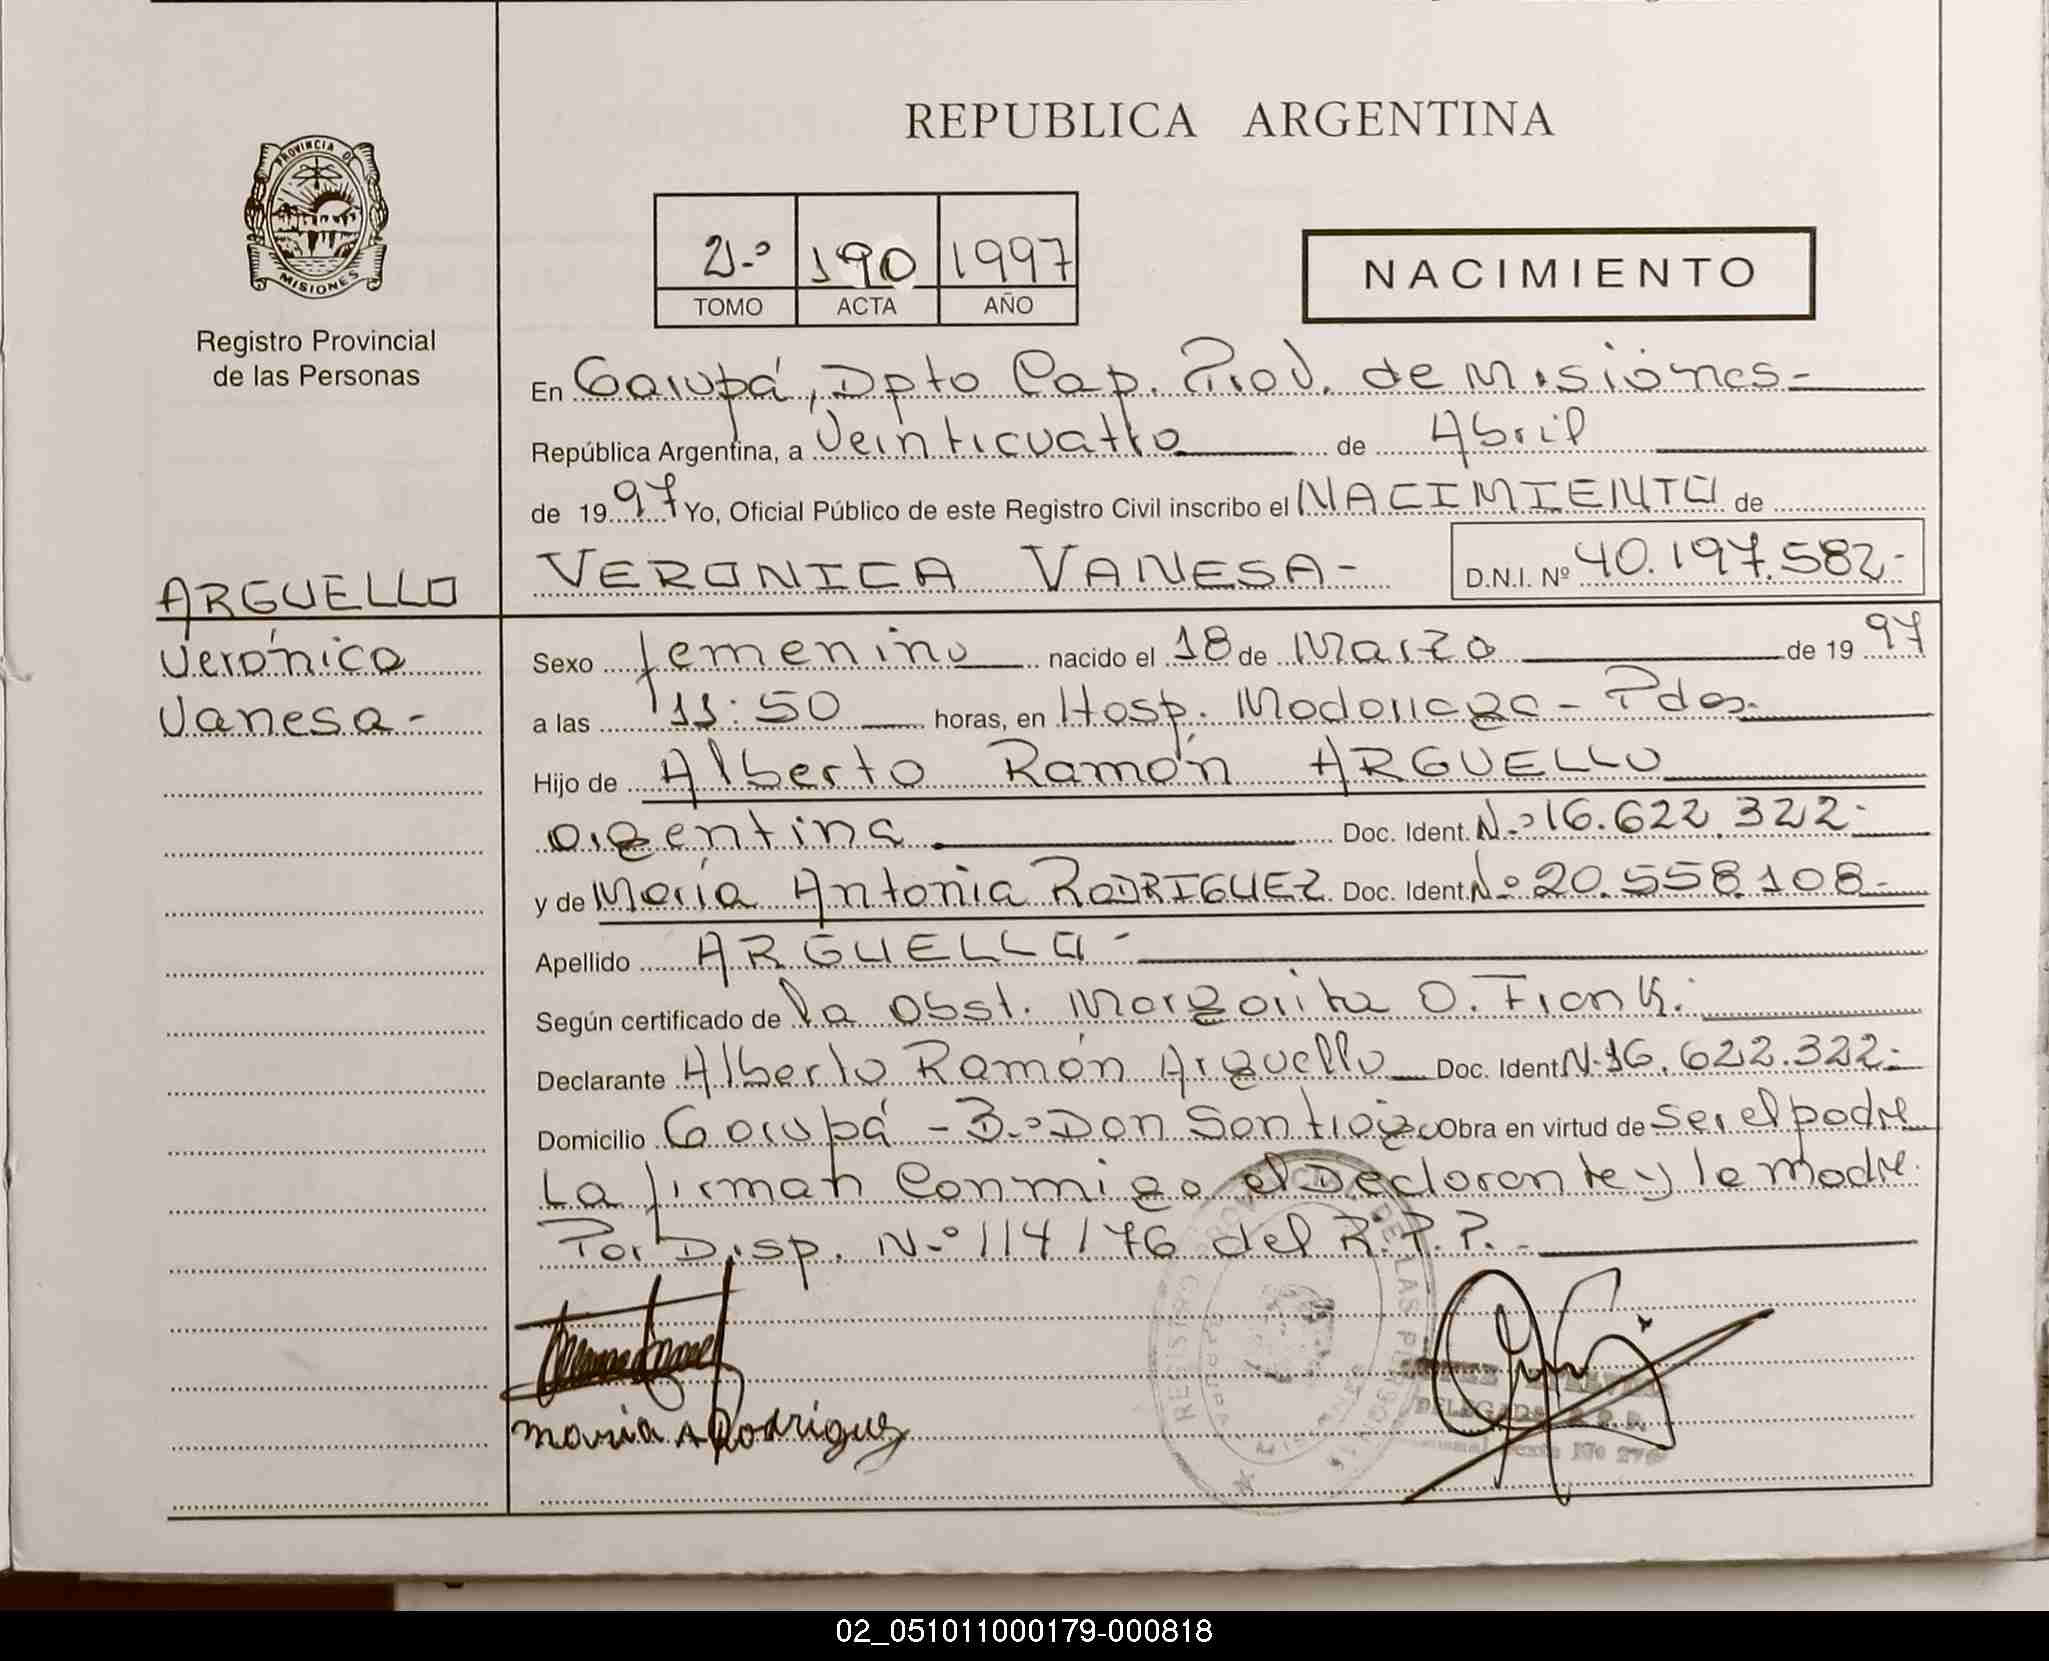 REPUBLICA ARGENTINA
PROVINCIA DE
MISIONES
Registro Provincial
de las Personas
2º 190 1997
TOMO ACTA AÑO
NACIMIENTO
En Garupá, Dpto Cap. Prov. de Misiones-
República Argentina, a Veinticuatro de Abril
de 1997 Yo, Oficial Público de este Registro Civil inscribo el NACIMIENTO de
VERONICA VANESA- D.N.I. Nº 40.197.582-
ARGUELLO
Verónica
Vanesa-
Sexo femenino nacido el 18 de Marzo de 1997
a las 11:50 horas, en Hosp. Madariaga - Pdas.
Hijo de Alberto Ramón ARGUELLO
argentina Doc. Ident. Nº 16.622.322-
y de María Antonia RODRIGUEZ Doc. Ident. Nº 20.558.108-
Apellido ARGUELLO-
Según certificado de la Obst. Margarita O. Frank.
Declarante Alberto Ramón Arguello Doc. Ident. Nº 16.622.322-
Domicilio Garupá - Bº Don Santiago Obra en virtud de ser el padre
La firman conmigo el Declarante y la madre.
Por Disp. Nº 114/76 del R.P.P.-
Maria A Rodriguez
REGISTRO PROVINCIAL DE LAS PERSONAS
MISIONES
DELEGADA
02_051011000179-000818